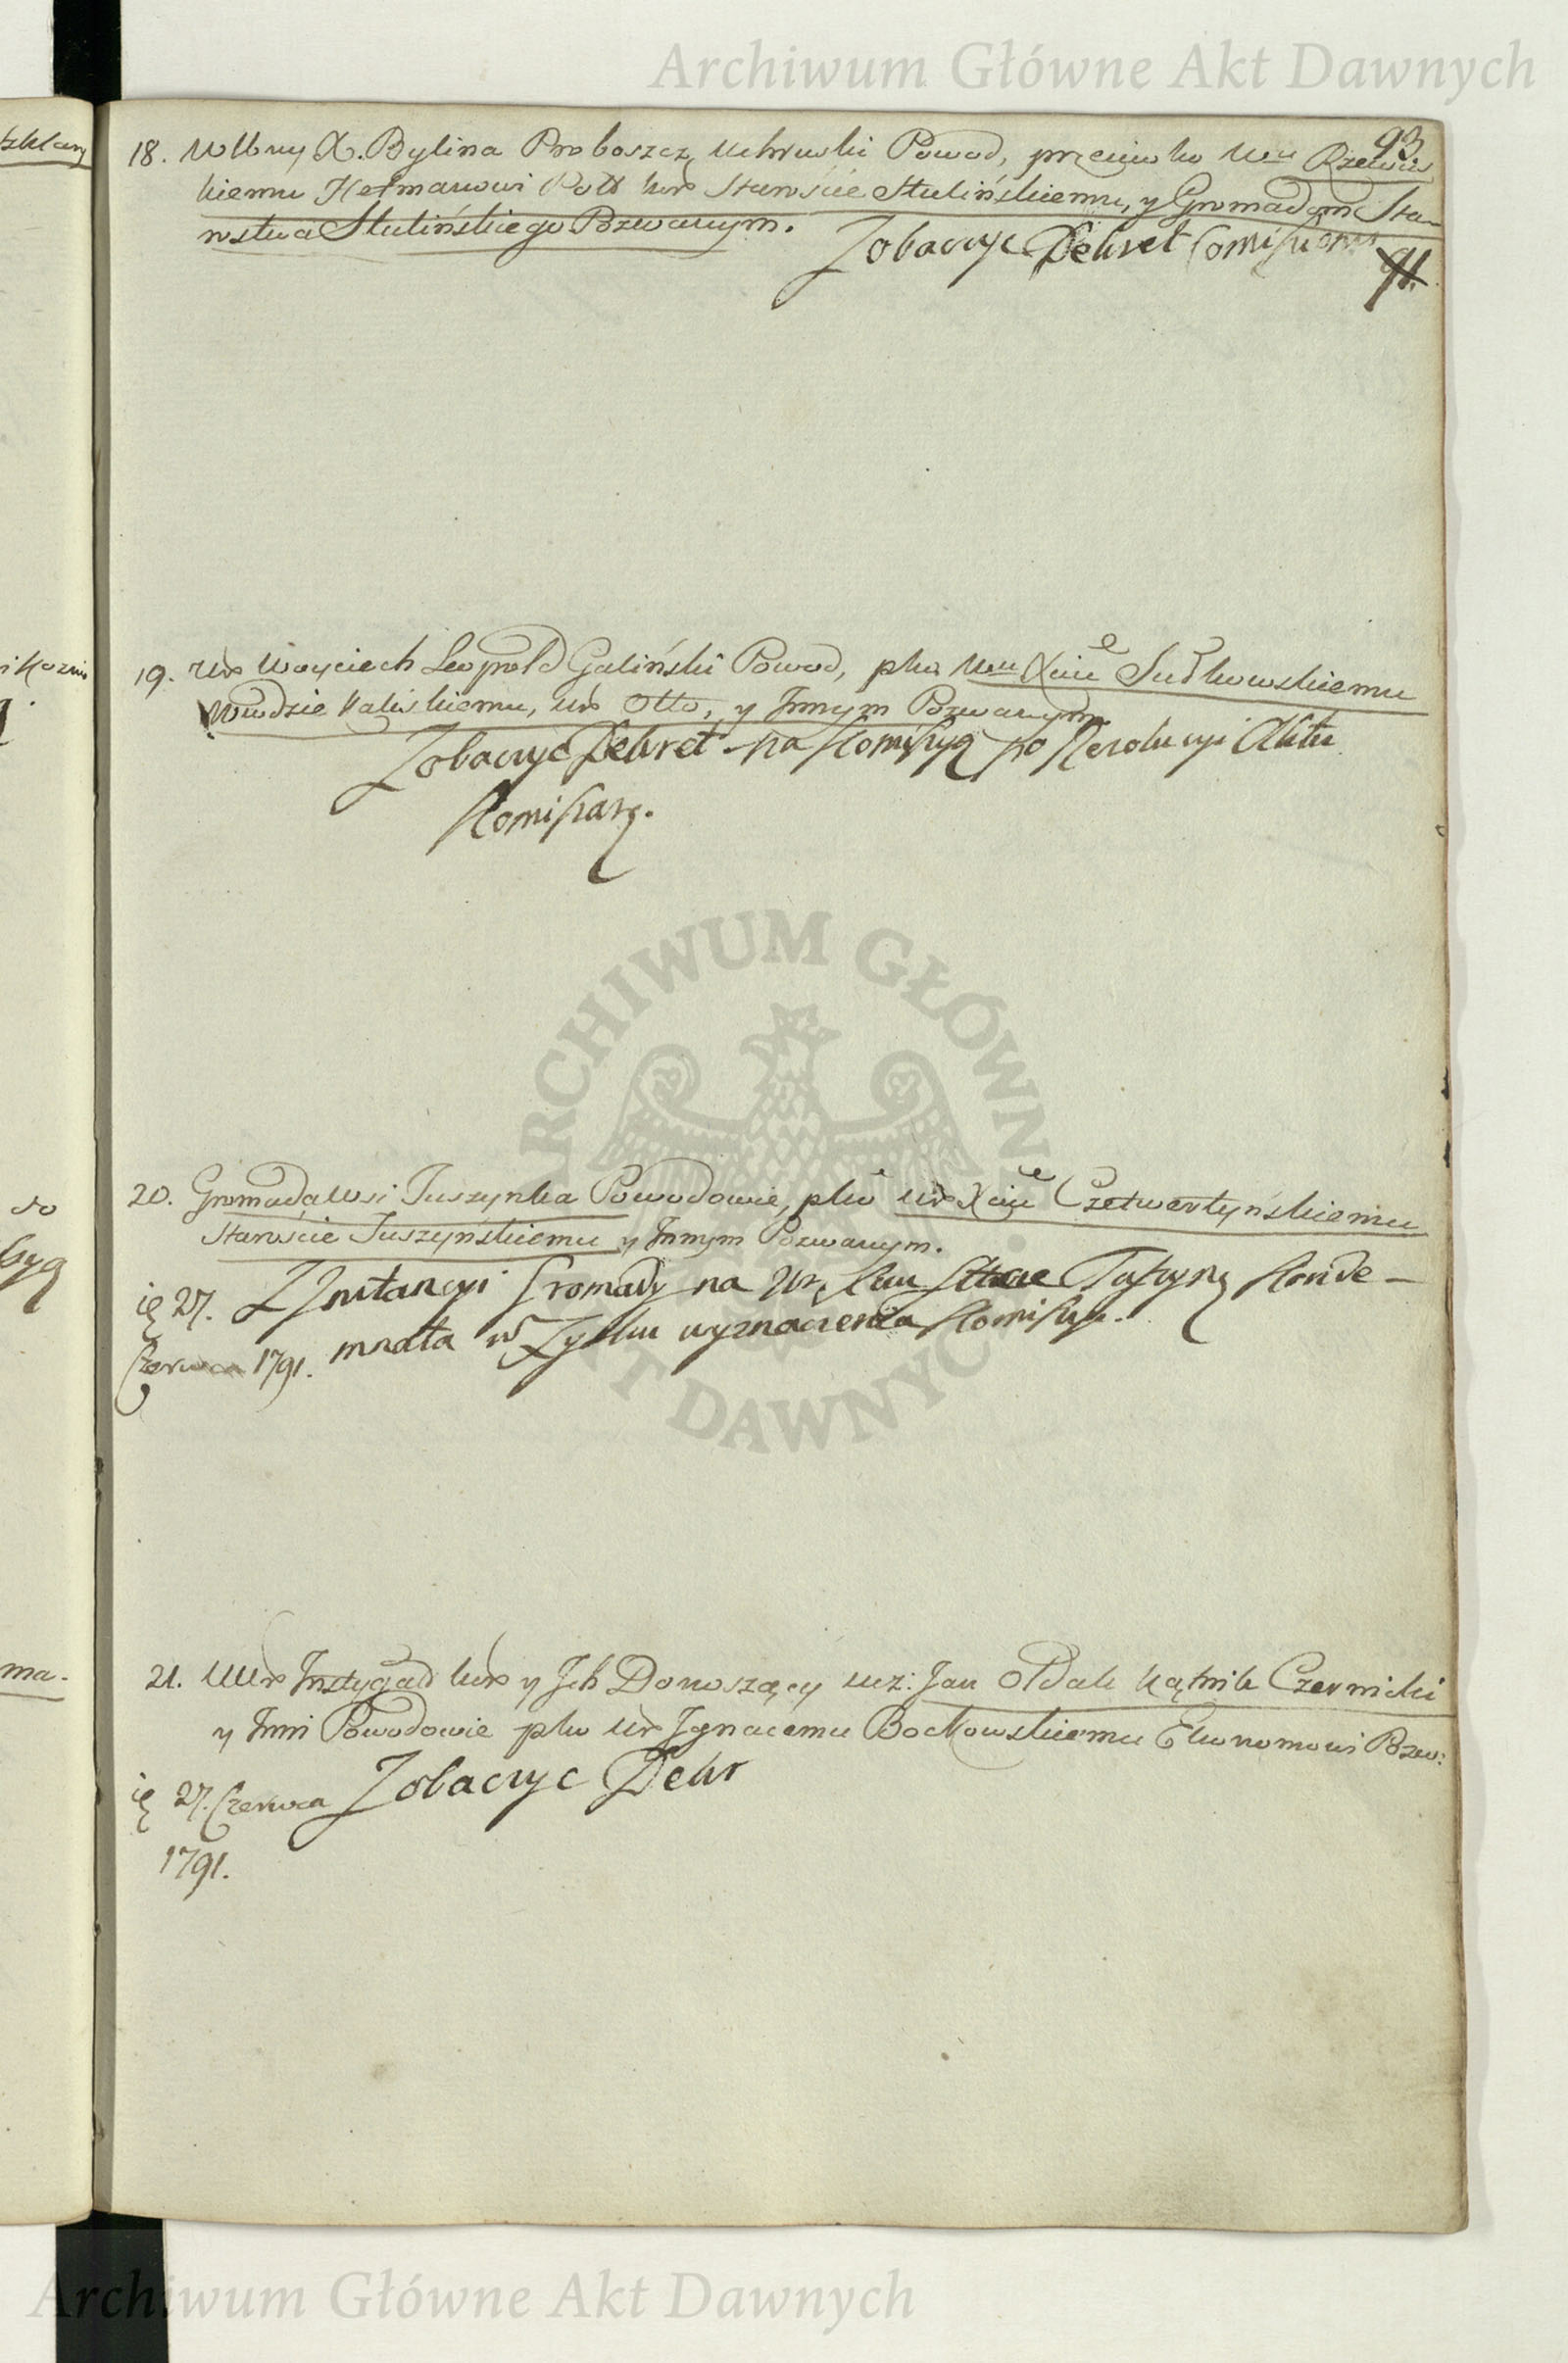 Archiwum Główne Akt Dawnych
93
18. Wlbny X. Bylina Proboszcz Uhruski Powod, przeciwko Wmu Rzewus
kiemu Hetmanowi Poll Kor Staroście Stulińskiemu, y Gromadom Sta-
rostwa Stulińskiego Pozwanym.
Zobaczyc Dekret Comissions
91.
19. Ur Woyciech Leopold Galiński Powod, pko Wmu Xciu Sułkowskiemu
Wwdzie Kaliskiemu, Ur Otto, y Innym Pozwanym
Zobaczyc Dekret na Komissyą po Rezolucyi Aktu
Komissarz.
20. Gromada Wsi Tuszynka Powodowie, pko Ur Xciu Czetwertyńskiemu
Staroście Tuszyńskiemu y Innym Pozwanym.
27. Z Instancyi Gromady na Ur. Konde-
Czerwca 1791. mnata w Zysku wyznaczenia Komissyi.
21. Ur Instygat Kor y Jch Donoszący ucz: Jan Oldak Kątnik Czernicki
y Inni Powodowie pko Ur Jgnacemu Bockowskiemu Ekonomowi Pozw:
27. Czerwca Zobaczyc Dekr
1791.
ARCHIWUM GŁÓWNE AKT DAWNYCH
Archiwum Główne Akt Dawnych